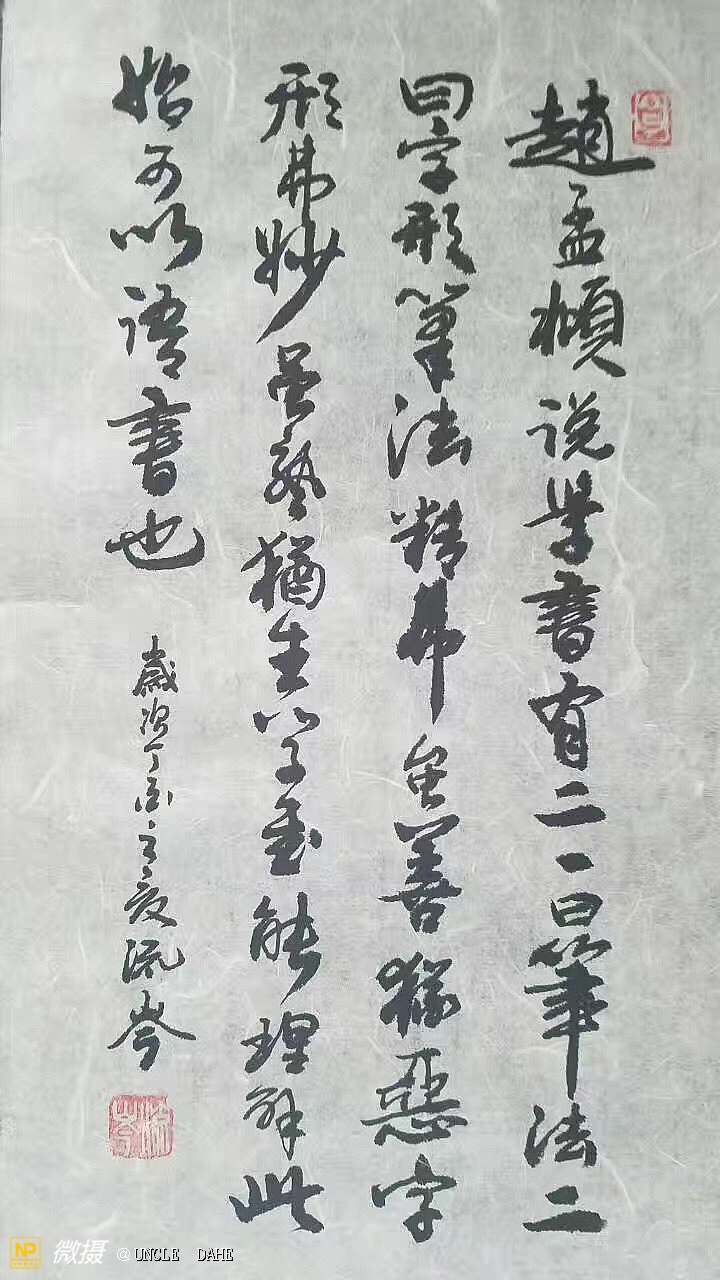 趙孟頫说學書有二一曰筆法二
曰字形筆法精弗虽善猶惡字
形弗妙虽熟猶生学能理解此
始可以語書也
歲次丁酉之夏流岑
NP 微摄 @UNCLE DAHE